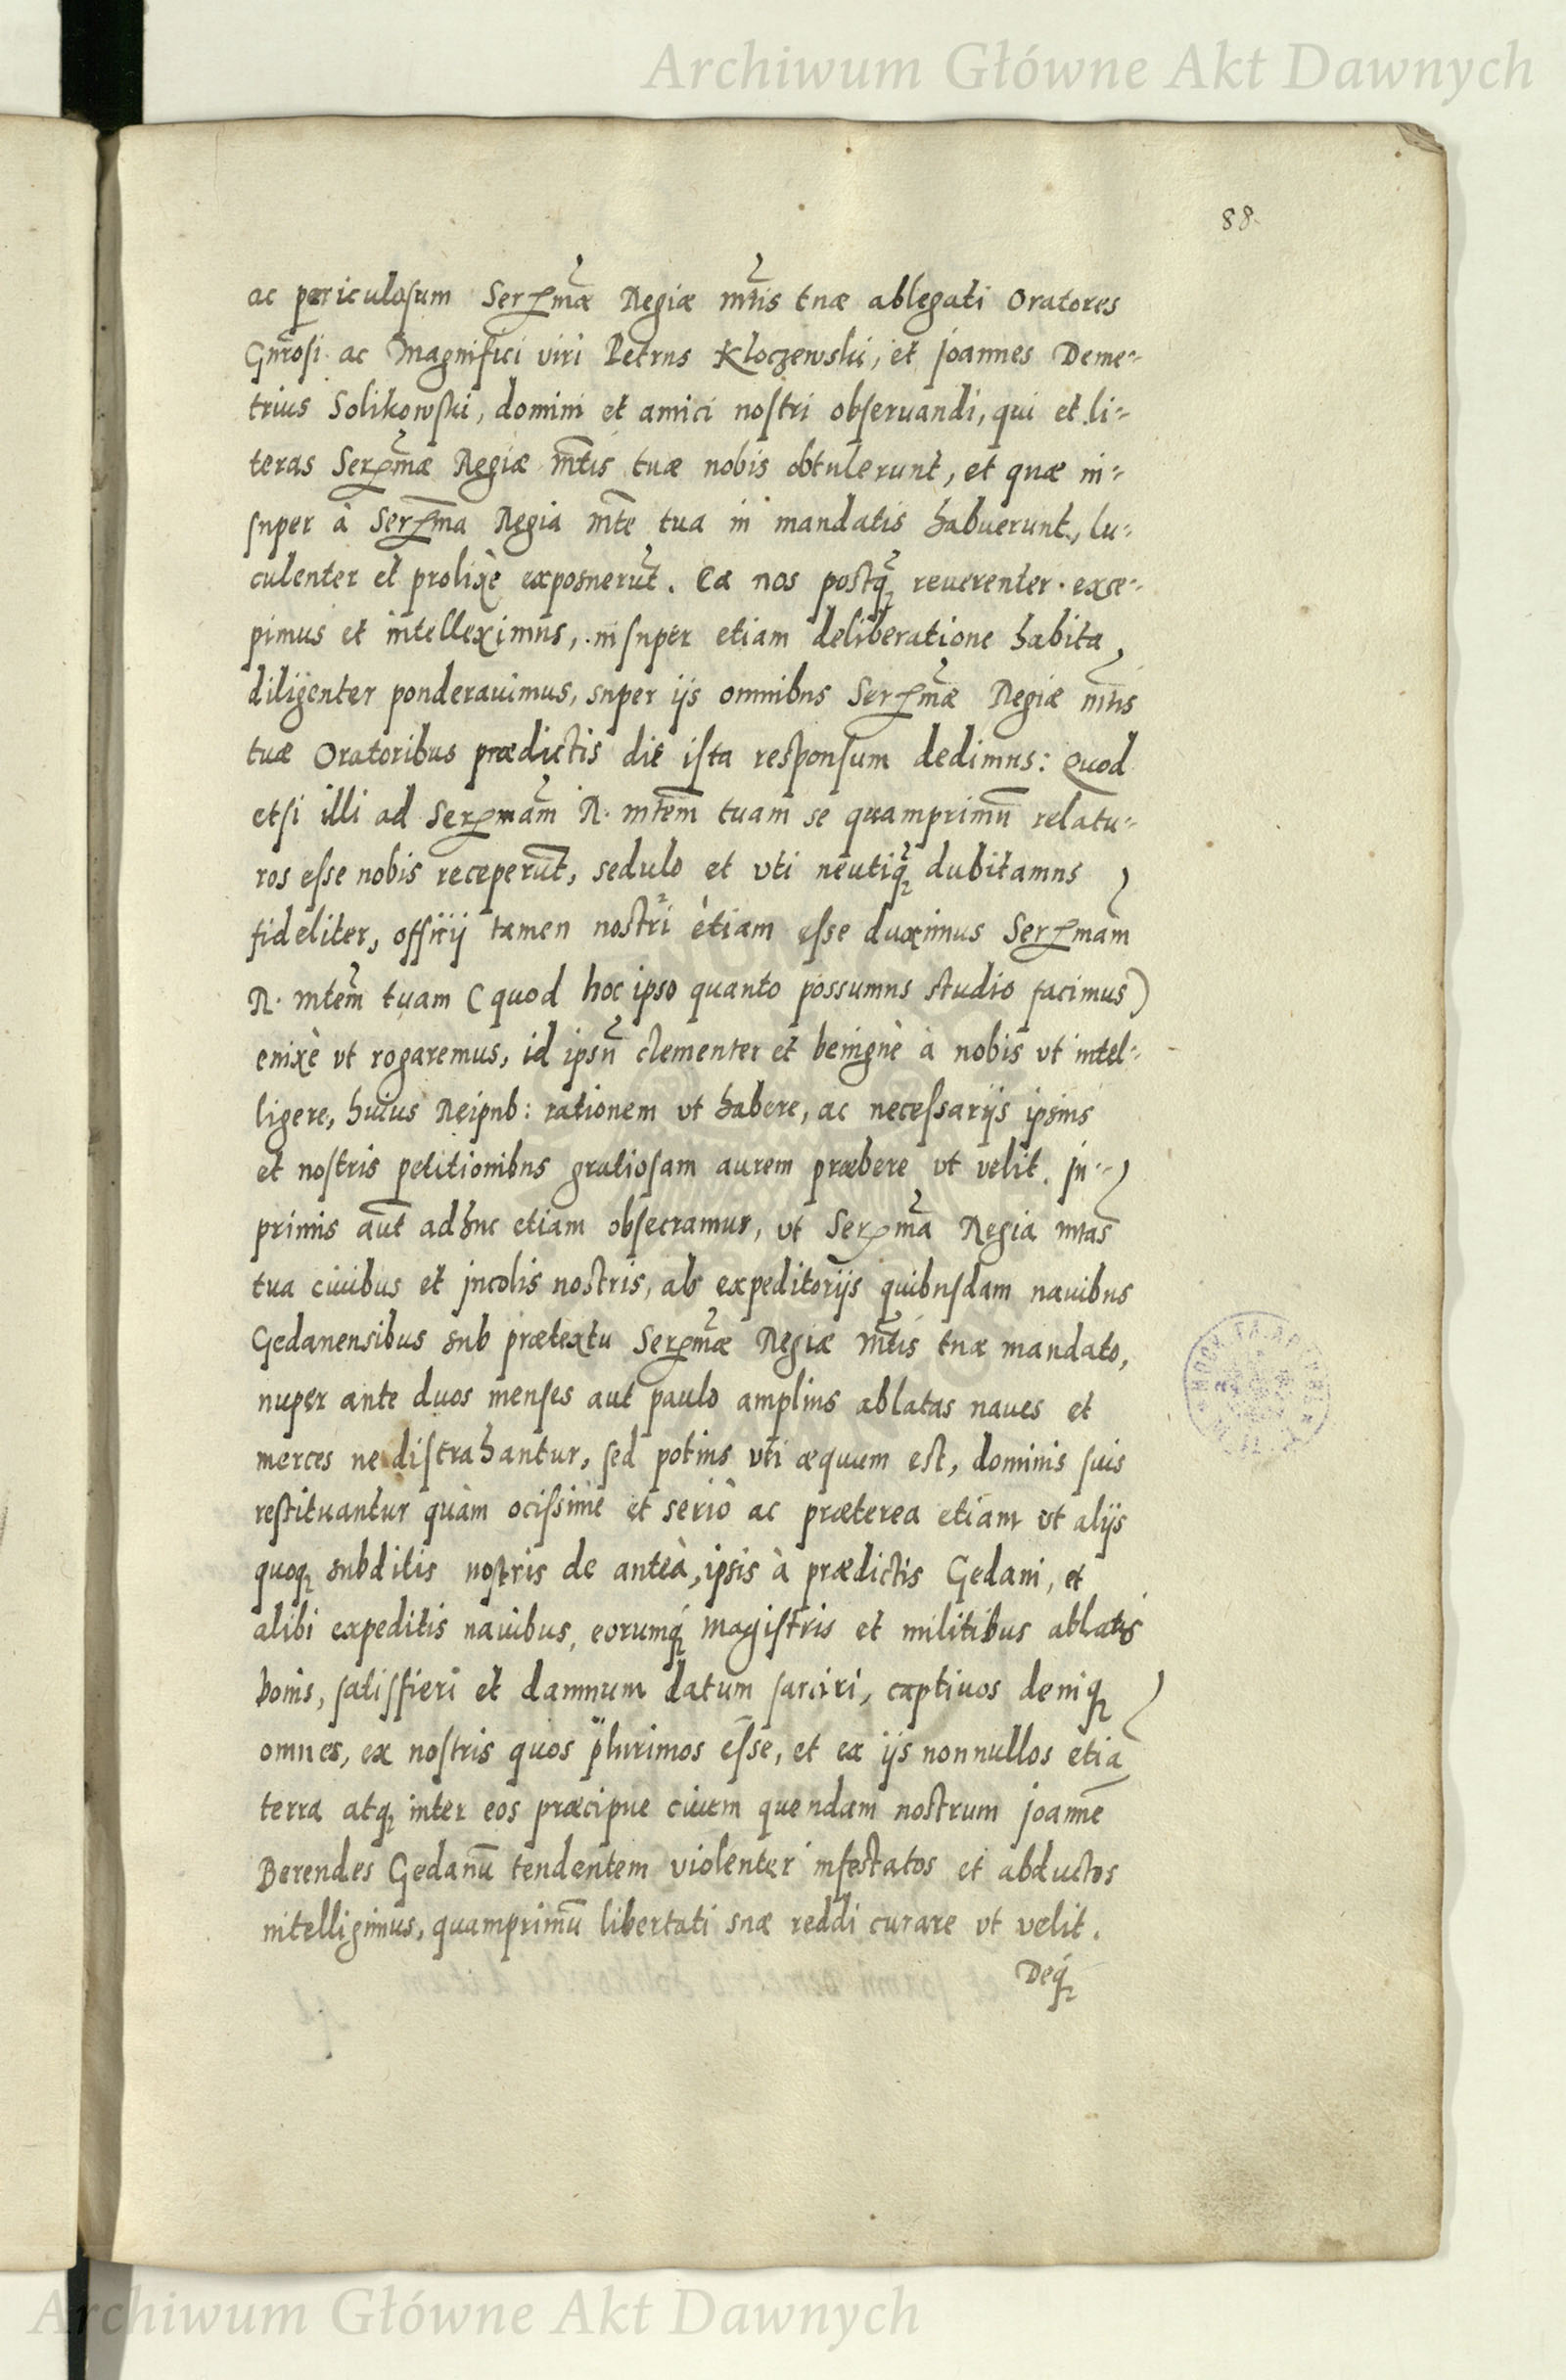 Archiwum Główne Akt Dawnych
88.
ac periculosum Serenmæ Regiæ mtis tuæ ablegati Oratores
Gnrosi ac Magnifici viri Petrus Kloczewski, et Joannes Deme=
trius Solikowski, domini et amici nostri obseruandi, qui et li=
teras Serenmæ Regiæ mtis tuæ nobis obtulerunt, et quæ in=
super à Serenma Regia mte tua in mandatis habuerunt, lu=
culenter et prolixè exposuerūt. Ea nos postq̃ reuerenter exce=
pimus et intelleximus, insuper etiam deliberatione habita
diligenter ponderauimus, super ijs omnibus Serenmæ Regiæ mtis
tuæ Oratoribus prædictis die ista responsum dedimus: Quod
etsi illi ad Serenmam R. mtem tuam se quamprimū relatu=
ros esse nobis receperūt, sedulo et vti neutiq̃ dubitamus
fideliter, officij tamen nostri etiam esse duximus Serenmam
R. mtem tuam (quod hoc ipso quanto possumus studio facimus)
enixè vt rogaremus, id ipsū clementer et benignè à nobis vt intel=
ligere, huius Reipub: rationem vt habere, ac necessarijs ipsius
et nostris petitionibus gratiosam aurem præbere vt velit. In=
primis aūt adhuc etiam obsecramur, vt Serenma Regia mtas
tua ciuibus et incolis nostris, ab expeditorijs quibusdam nauibus
Gedanensibus sub prætextu Serenmæ Regiæ mtis tuæ mandato,
nuper ante duos menses aut paulo amplius ablatas naues et
merces ne distrahantur, sed potius vti æquum est, dominis suis
restituantur quàm ocissimè et seriò ac præterea etiam vt alijs
quoq; subditis nostris de anteà, ipsis à prædictis Gedani, et
alibi expeditis nauibus, eorumq; magistris et militibus ablatis
bonis, satisfieri et damnum datum sarciri, captiuos deniq;
omnes, ex nostris quos plurimos esse, et ex ijs nonnullos etiā
terra atq; inter eos præcipue ciuem quendam nostrum Joannē
Berendes Gedanū tendentem violenter infestatos et abductos
intelligimus, quamprimū libertati suæ reddi curare vt velit.
Deq;
Archiwum Główne Akt Dawnych